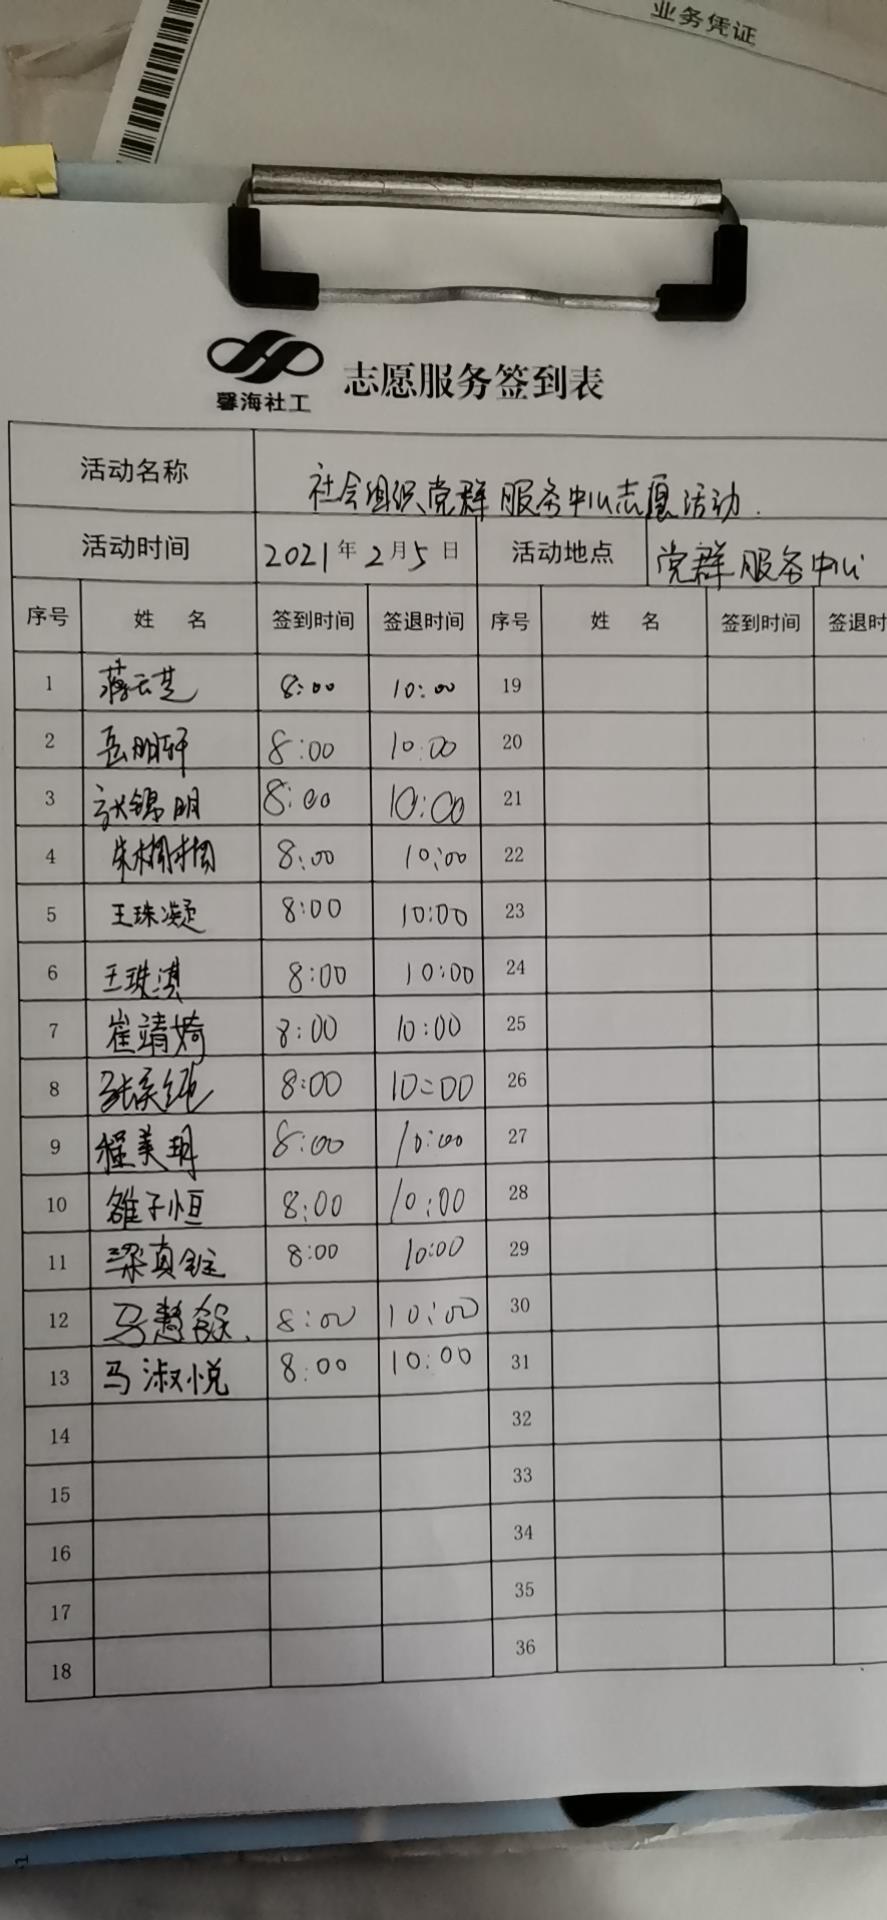 业务凭证
馨海社工
志愿服务签到表
活动名称 社会组织党群服务中心志愿活动.
活动时间 2021年2月5日 活动地点 党群服务中心
序号 姓 名 签到时间 签退时间 序号 姓 名 签到时间 签退时
1 蒋云芝 8:00 10:00 19
2 岳明轩 8:00 10:00 20
3 张锦明 8:00 10:00 21
4 朱栩栩 8:00 10:00 22
5 王珠凝 8:00 10:00 23
6 王珠淇 8:00 10:00 24
7 崔靖婍 8:00 10:00 25
8 8:00 10:00 26
9 程美玥 8:00 10:00 27
10 雒子恒 8:00 10:00 28
11 梁真 8:00 10:00 29
12 马慧 8:00 10:00 30
13 马淑悦 8:00 10:00 31
14 32
15 33
16 34
17 35
18 36